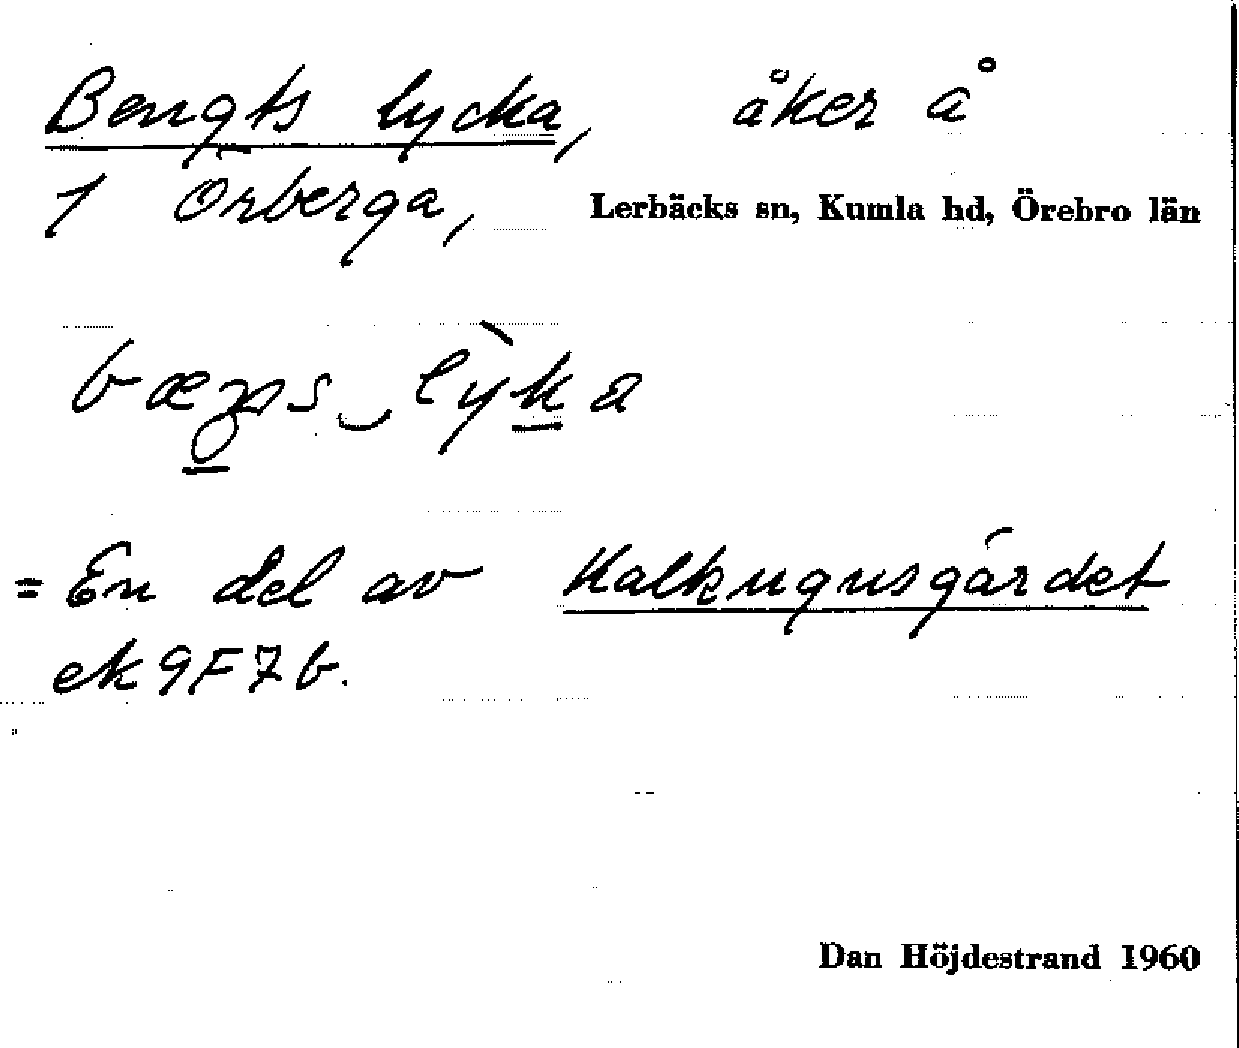 Bengts lycka, åker å
1 Örberga, Lerbäcks sn, Kumla hd, Örebro län
lỳka
= En del av Kalkugnsgärdet
ek 9F7b.
Dan Höjdestrand 1960